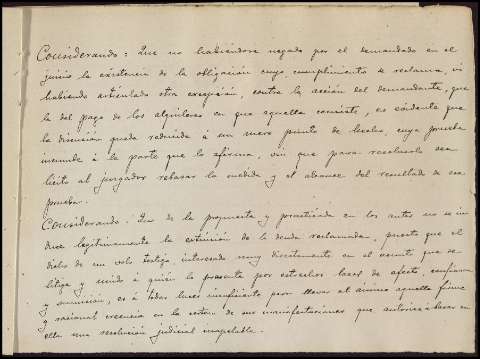 Considerando: Que no habiéndose negado por el demandado en el
juicio la existencia de la obligación cuyo cumplimiento se reclama, ni
habiendo articulado otra excepción, contra la acción del demandante, que
la del pago de los alquileres en que aquella consiste, es evidente que
la discusión queda reducida á un mero punto de hecho, cuya prueba
incumbe á la parte que lo afirma, sin que para resolverlo sea
lícito al juzgador rebasar la medida y el alcance del resultado de esa
prueba.
Considerando: Que de la propuesta y practicada en los autos no se in
duce legítimamente la extinción de la deuda reclamada, puesto que el
dicho de un solo testigo, interesado muy directamente en el asunto que se
litiga y unido á quién lo presenta por estrechos lazos de afecto, confianza
y sumisión, es á todas luces insuficiente para llevar al ánimo aquella firme
y racional creencia en la certeza de sus manifestaciones que autorice á basar en
ella una resolución judicial inapelable.